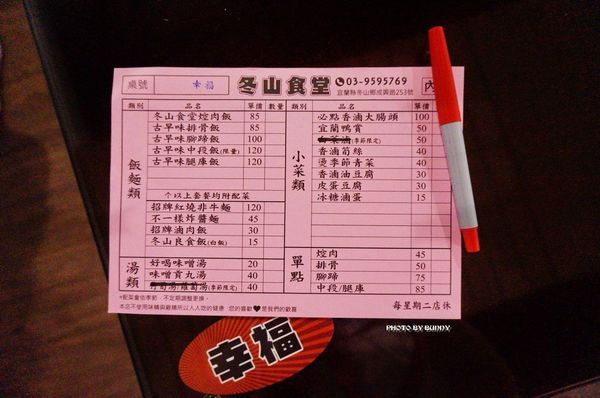 桌號 幸福 冬山食堂 03-9595769 內
宜蘭縣冬山鄉成興路253號
類別 品名 單價 數量 類別 品名 單價
飯麵類
冬山食堂焢肉飯 85
古早味排骨飯 85
古早味腳蹄飯 100
古早味中段飯(限量) 120
古早味腿庫飯 120
個以上套餐均附配菜
招牌紅燒非牛麵 120
不一樣炸醬麵 45
招牌滷肉飯 30
冬山良食飯(白飯) 15
湯類
好喝味噌湯 20
味噌貢丸湯 40
(季節限定) 40
小菜類
必點香滷大腸頭 100
宜蘭鴨賞 50
(季節限定) 50
香滷筍絲 40
燙季節青菜 40
香滷油豆腐 30
皮蛋豆腐 30
冰糖滷蛋 15
單點
焢肉 45
排骨 50
腳蹄 75
中段/腿庫 85
※配菜會依季節，不定期調整更換。
本店不使用味精與雞精所以人人吃的健康 您的喜歡♥是我們的歡喜
每星期二店休
PHOTO BY BUNNY
幸福